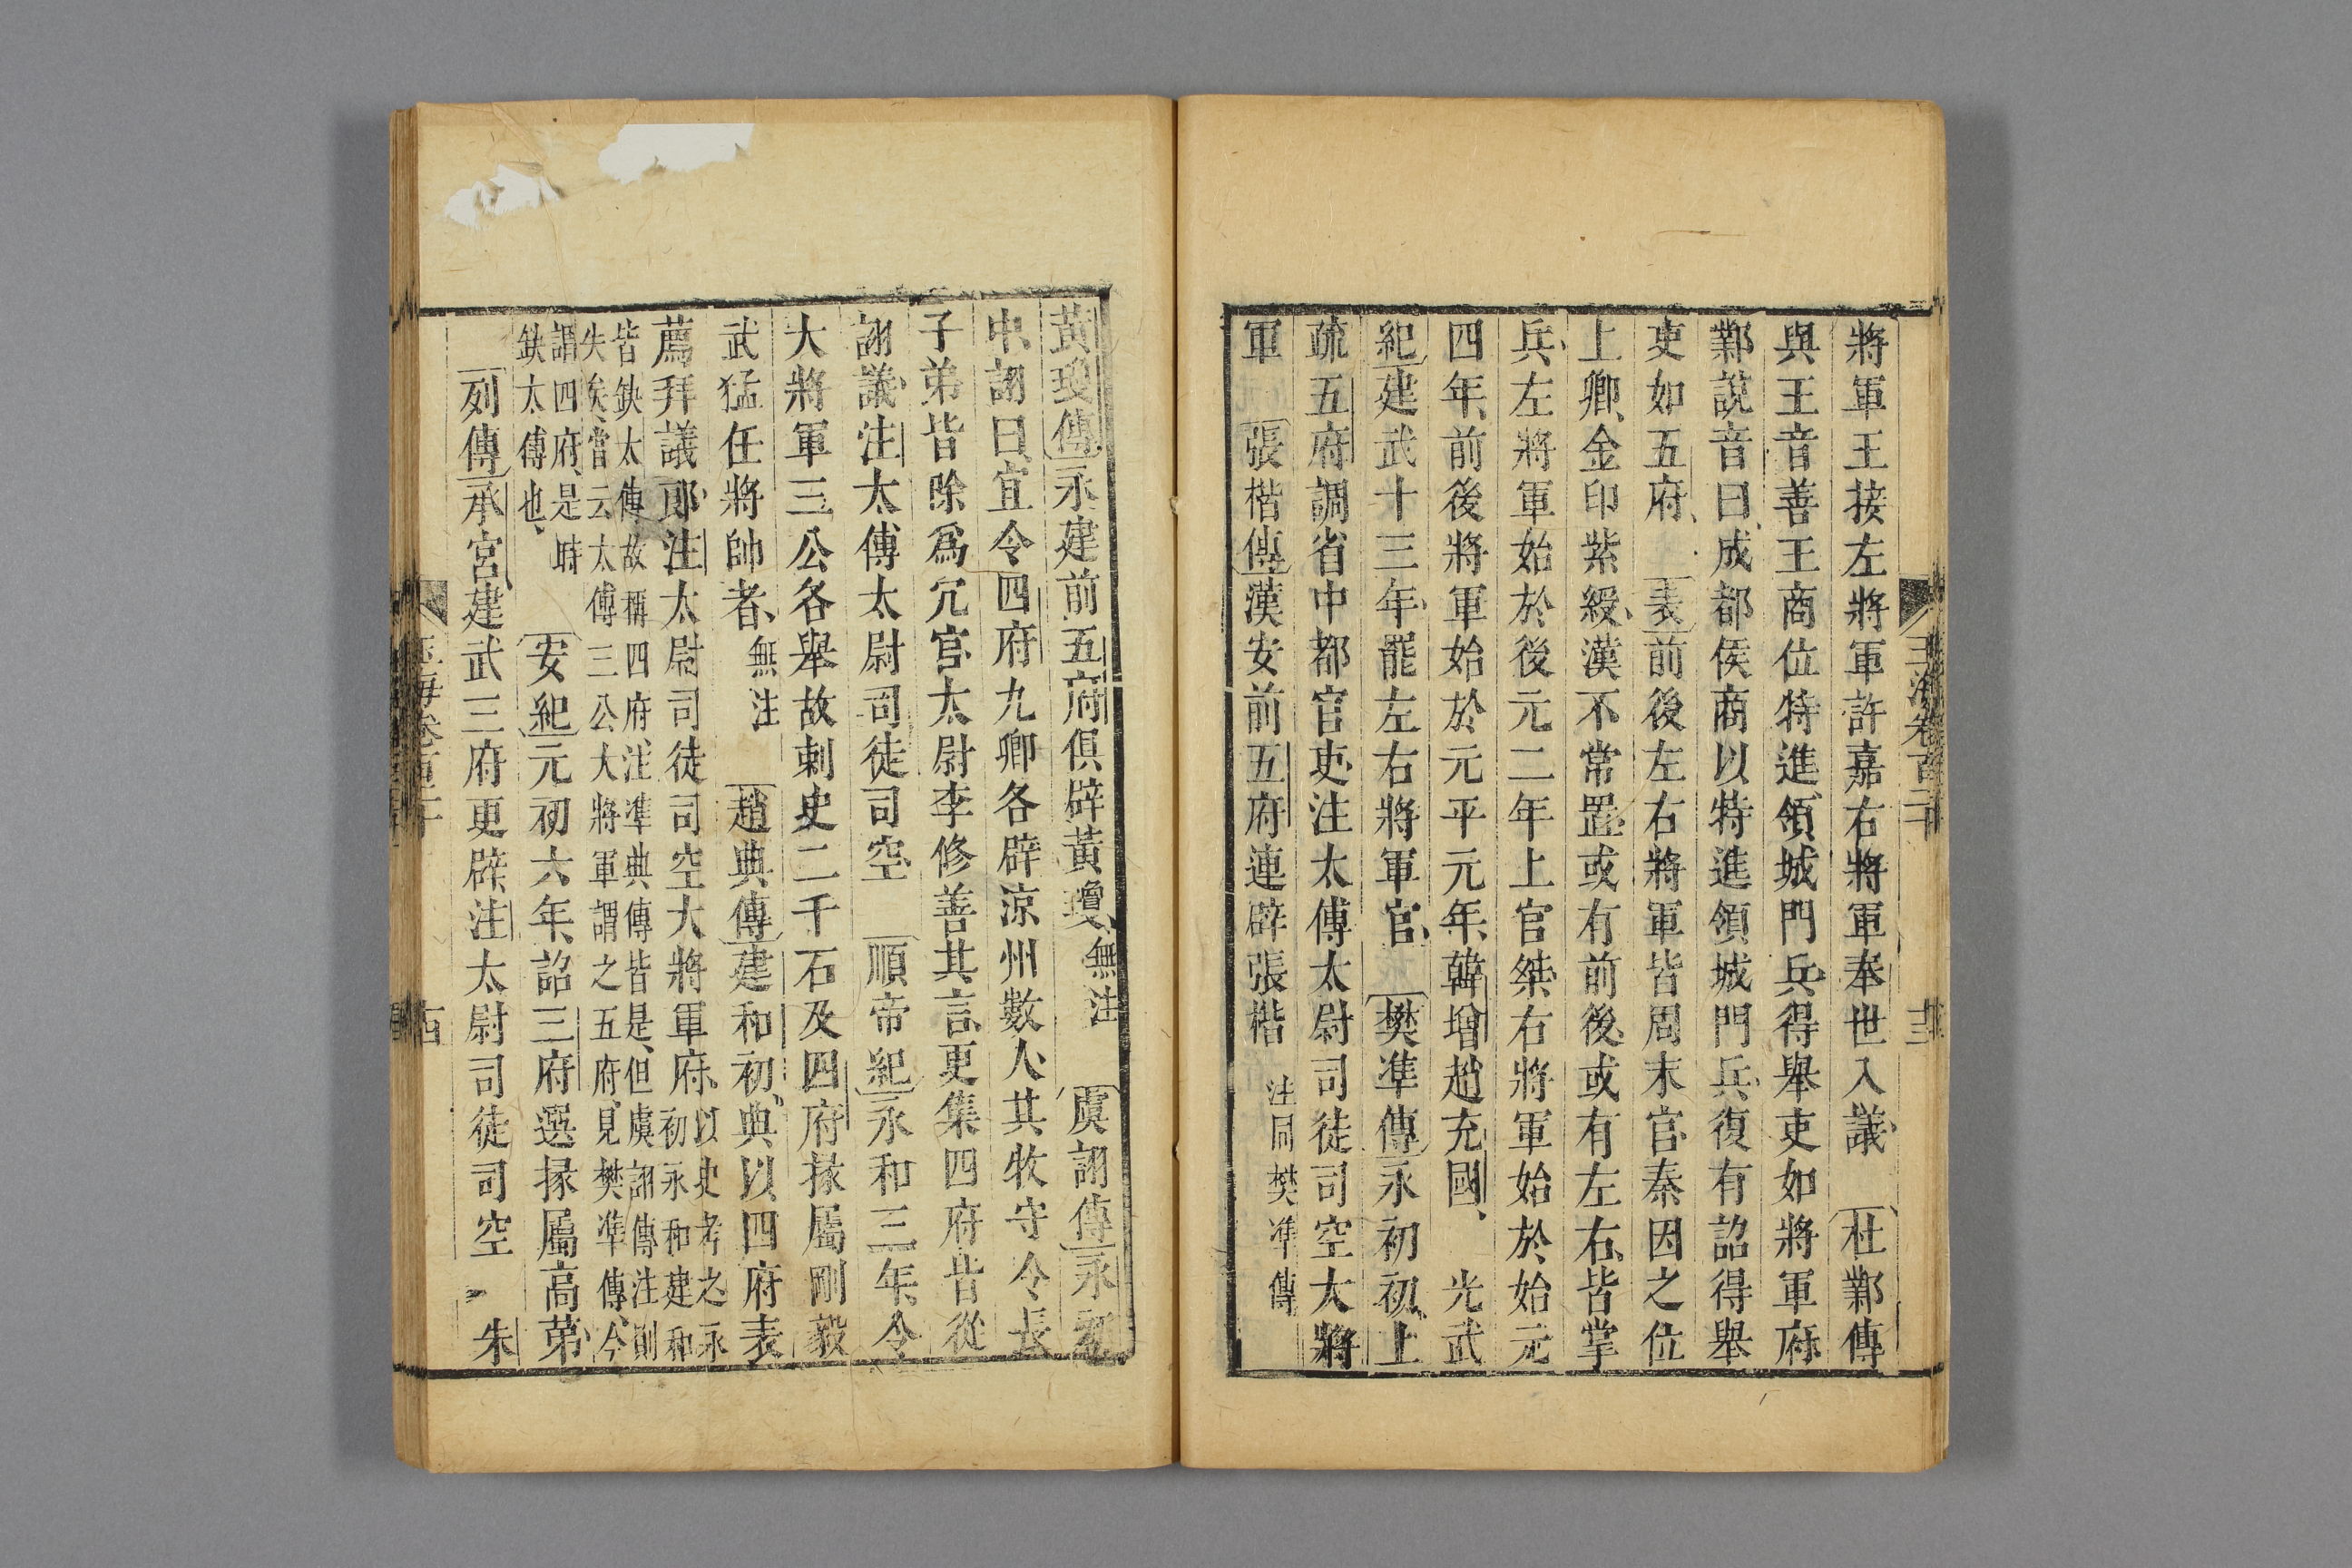 玉海卷百二十
十三
將軍王接左將軍許嘉右將軍奉世入議　杜鄴傳
與王音善王商位特進領城門兵得舉吏如將軍府
鄴説音曰成都侯商以特進領城門兵復有詔得舉
吏如五府　表前後左右將軍皆周末官秦因之位
上卿金印紫綬漢不常置或有前後或有左右皆掌
兵左將軍始於後元二年上官桀右將軍始於始元
四年前後將軍始於元平元年韓增趙充國　光武
紀建武十三年罷左右將軍官　樊準傳永初初上
疏五府調省中都官吏注太傅太尉司徒司空大將
軍　張楷傳漢安前五府連辟張楷　注同樊準傳
黃瓊傳永建前五府俱辟黃瓊無注　虞詡傳永初
中詡曰宜令四府九卿各辟涼州數人其牧守令長
子弟皆除爲冗官太尉李修善其言更集四府皆從
詡議注太傅太尉司徒司空　順帝紀永和三年令
大將軍三公各舉故刺史二千石及四府掾屬剛毅
武猛任將帥者無注　趙典傳建和初典以四府表
薦拜議郎注太尉司徒司空大將軍府以史考之永
初永和建和
皆缺太傅故稱四府注準典傳皆是但虞詡傳注則
失矣當云太傅三公大將軍謂之五府見樊準傳今
謂四府是時
缺太傅也　安紀元初六年詔三府選掾屬高第
列傳承宮建武三府更辟注太尉司徒司空　朱